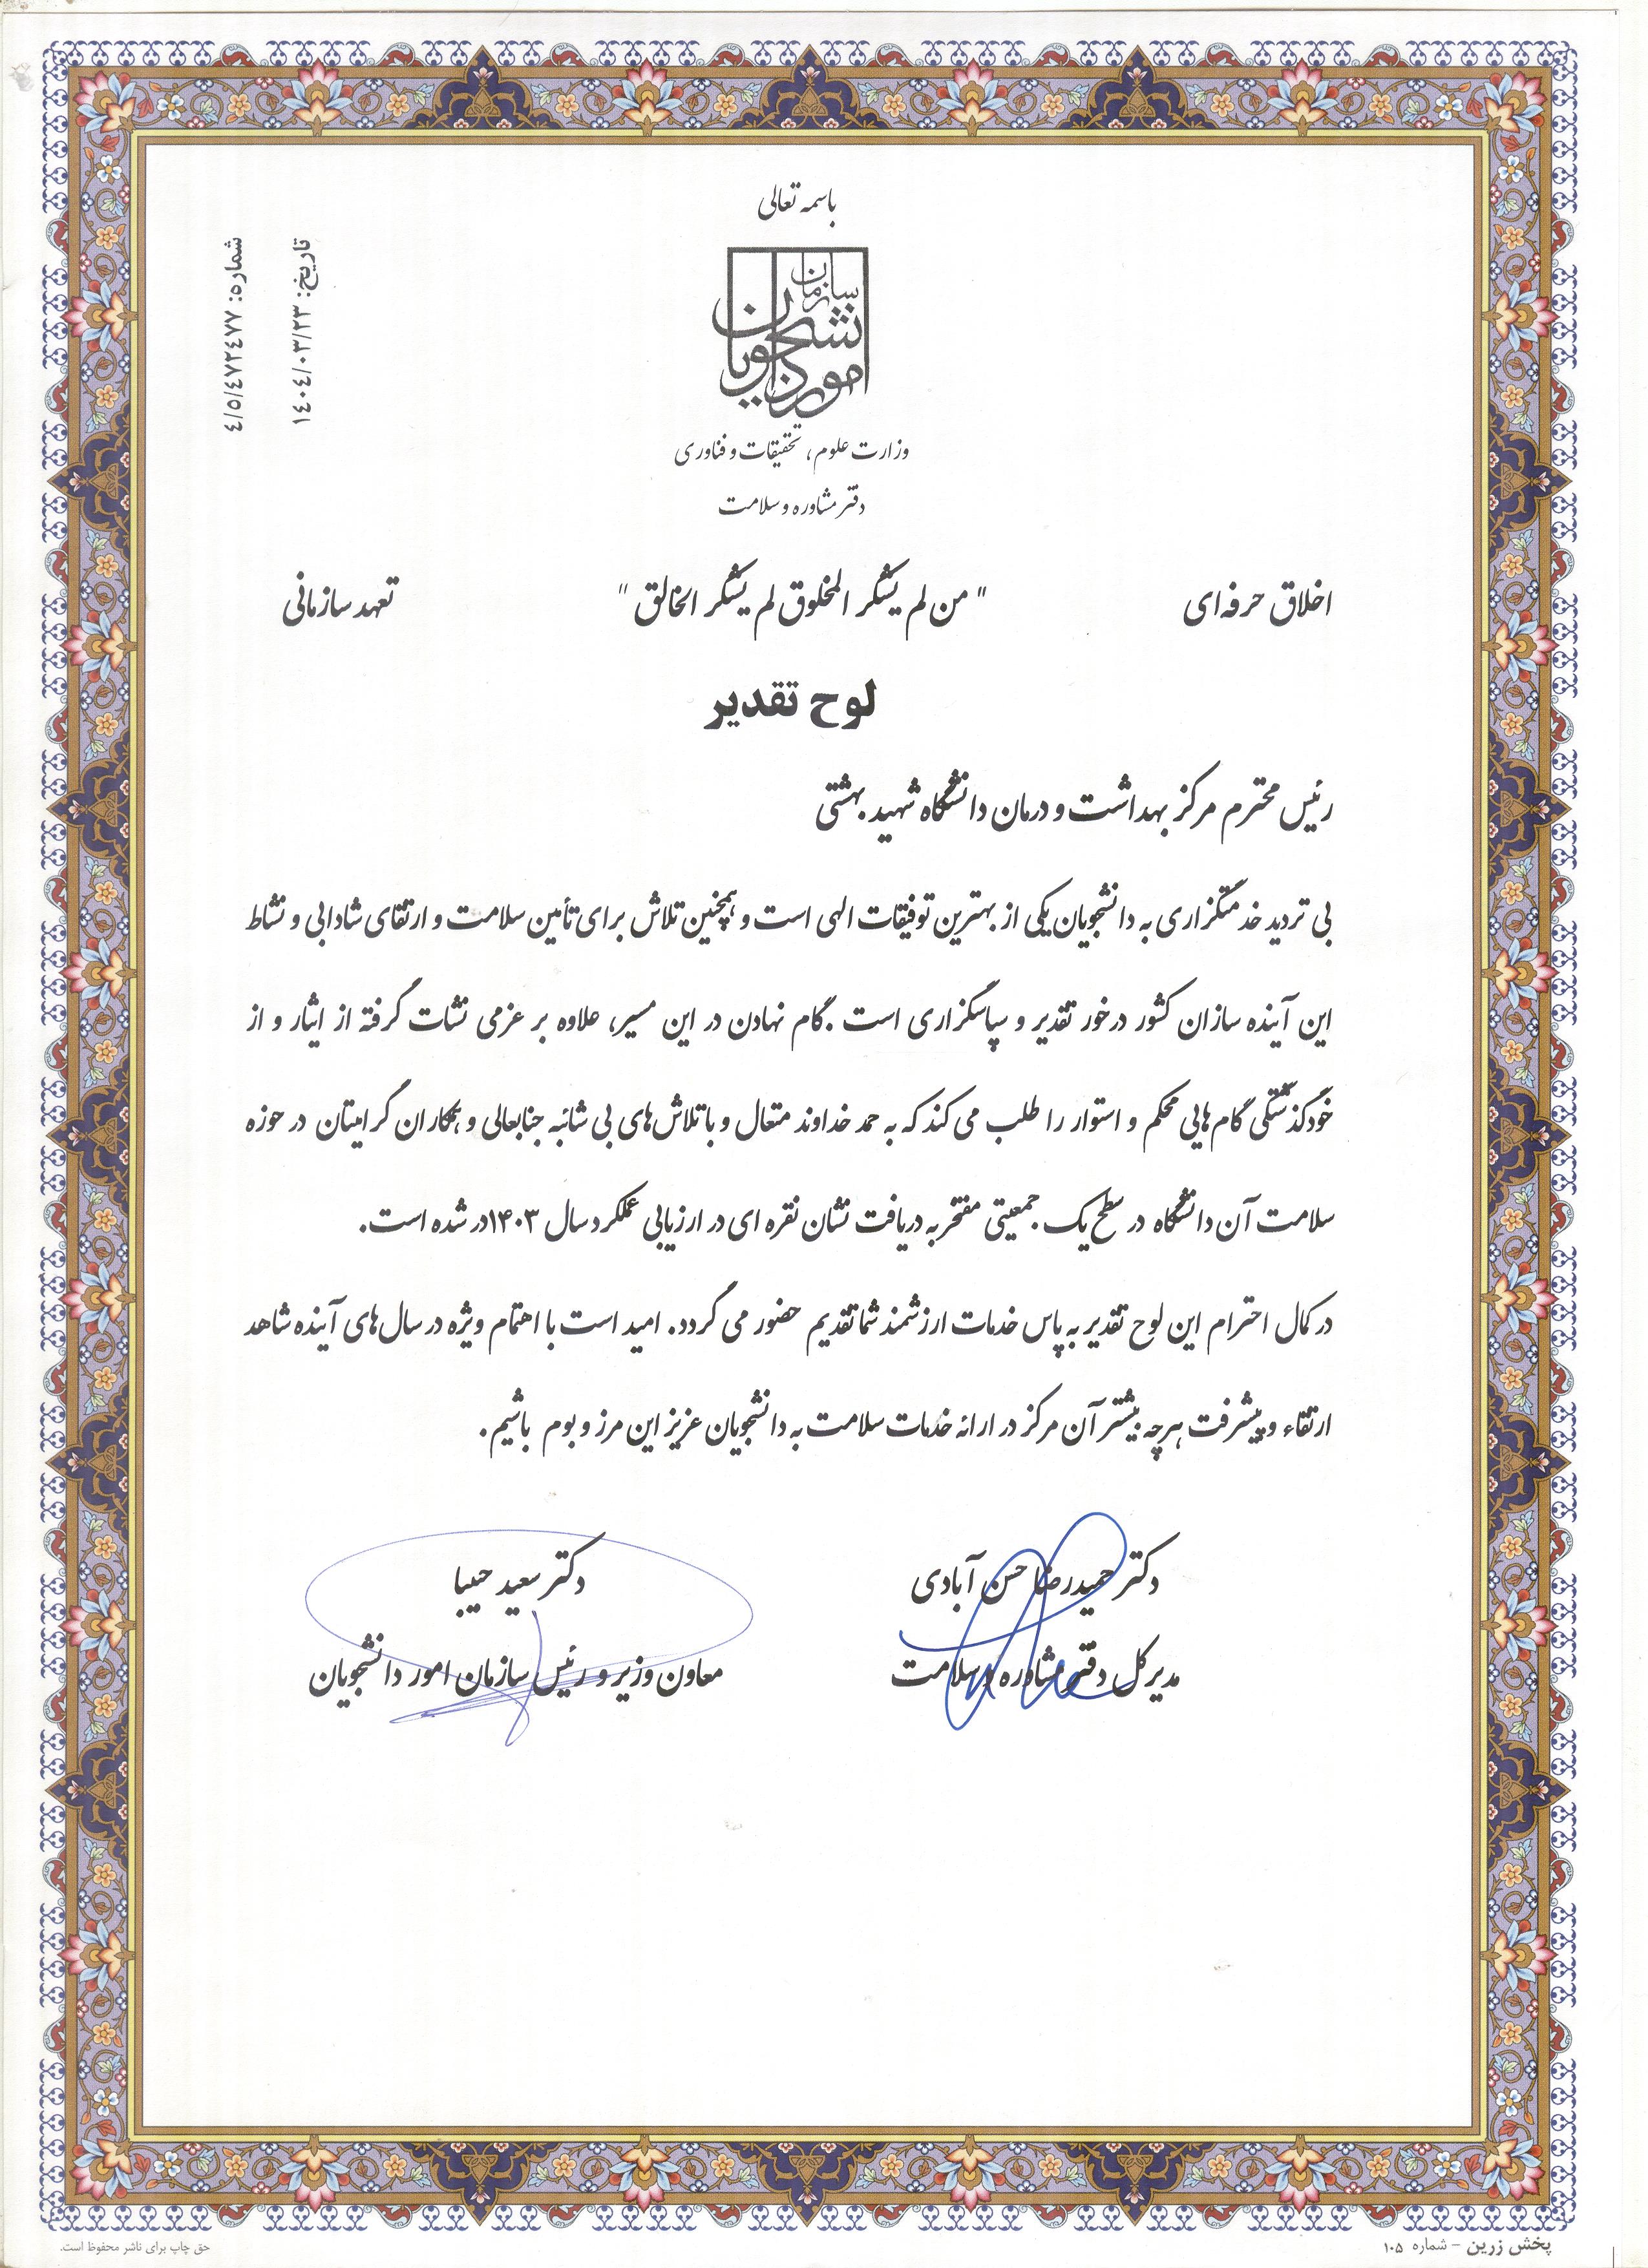 باسمه تعالی
شماره: ۴/۵/۴۷۲۴۷۷
تاریخ: ۱۴۰۴/۰۳/۲۳
سازمان امور دانشجویان
وزارت علوم، تحقیقات و فناوری
دفتر مشاوره و سلامت
اخلاق حرفه‌ای " من لم یشکر المخلوق لم یشکر الخالق " تعهد سازمانی
لوح تقدیر
رئیس محترم مرکز بهداشت و درمان دانشگاه شهید بهشتی
بی تردید خدمتگزاری به دانشجویان یکی از بهترین توفیقات الهی است و همچنین تلاش برای تأمین سلامت و ارتقای شادابی و نشاط
این آینده سازان کشور درخور تقدیر و سپاسگزاری است .گام نهادن در این مسیر، علاوه بر عزمی نشات گرفته از ایثار و از
خودگذشتگی گام‌هایی محکم و استوار را طلب می کند که به حمد خداوند متعال و با تلاش‌های بی شائبه جنابعالی و همکاران گرامیتان در حوزه
سلامت آن دانشگاه در سطح یک جمعیتی مفتخر به دریافت نشان نقره ای در ارزیابی عملکرد سال ۱۴۰۳در شده است.
در کمال احترام این لوح تقدیر به پاس خدمات ارزشمند شما تقدیم حضور می گردد. امید است با اهتمام ویژه در سال‌های آینده شاهد
ارتقاء و پیشرفت هرچه بیشتر آن مرکز در ارائه خدمات سلامت به دانشجویان عزیز این مرز و بوم باشیم.
دکتر حمیدرضا حسن آبادی
مدیرکل دفتر مشاوره و سلامت
دکتر سعید حبیبا
معاون وزیر و رئیس سازمان امور دانشجویان
پخش زرین - شماره ۱۰۵
حق چاپ برای ناشر محفوظ است.